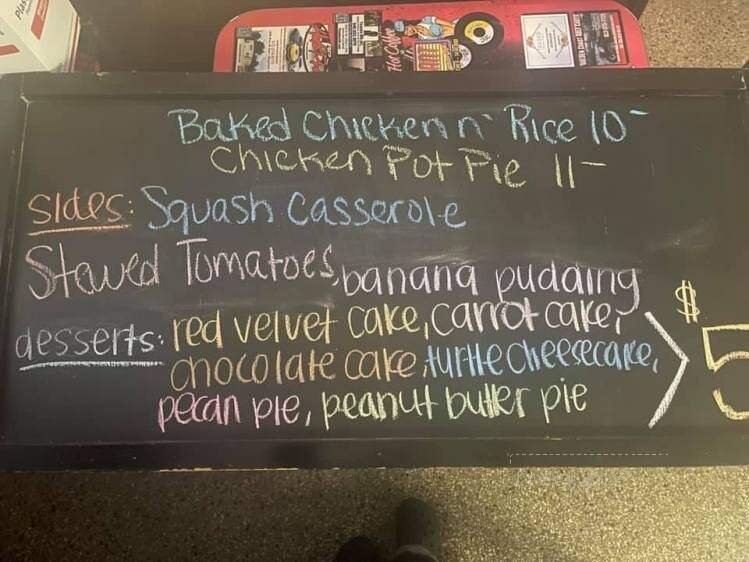 Plas
Hot Coffee
Baked Chicken n' Rice 10-
Chicken Pot Pie 11-
sides: Squash Casserole
Stewed Tomatoes, banana pudding
desserts: red velvet cake, carrot cake,
chocolate cake, turtle cheesecake,
pecan pie, peanut butter pie
$5